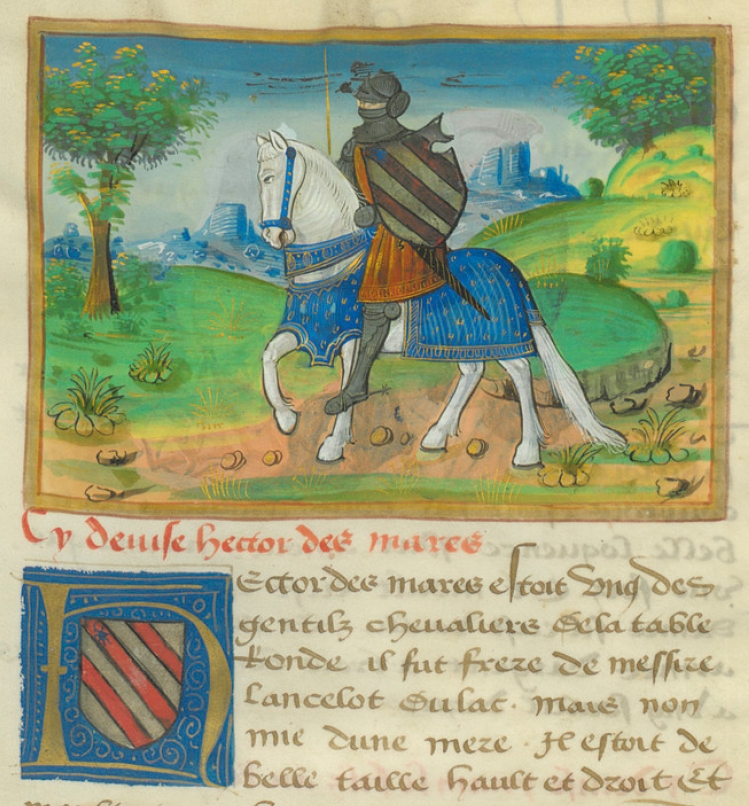 Cy deuise hector des mares
HEctor des mares estoit vng des
gentilz cheualiers de la table
Ronde il fut frere de messire
Lancelot dulac. mais non
mie dune mere. Il estoit de
belle taille hault et droit Et